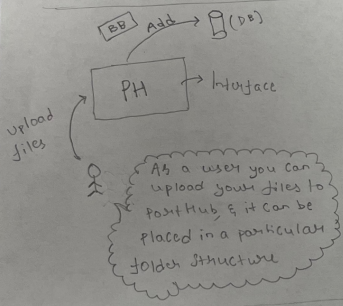 BB
Add
(DB)
PH
Interface
upload
files
As a user you can
upload your files to
PortHub, & it can be
placed in a particular
folder structure